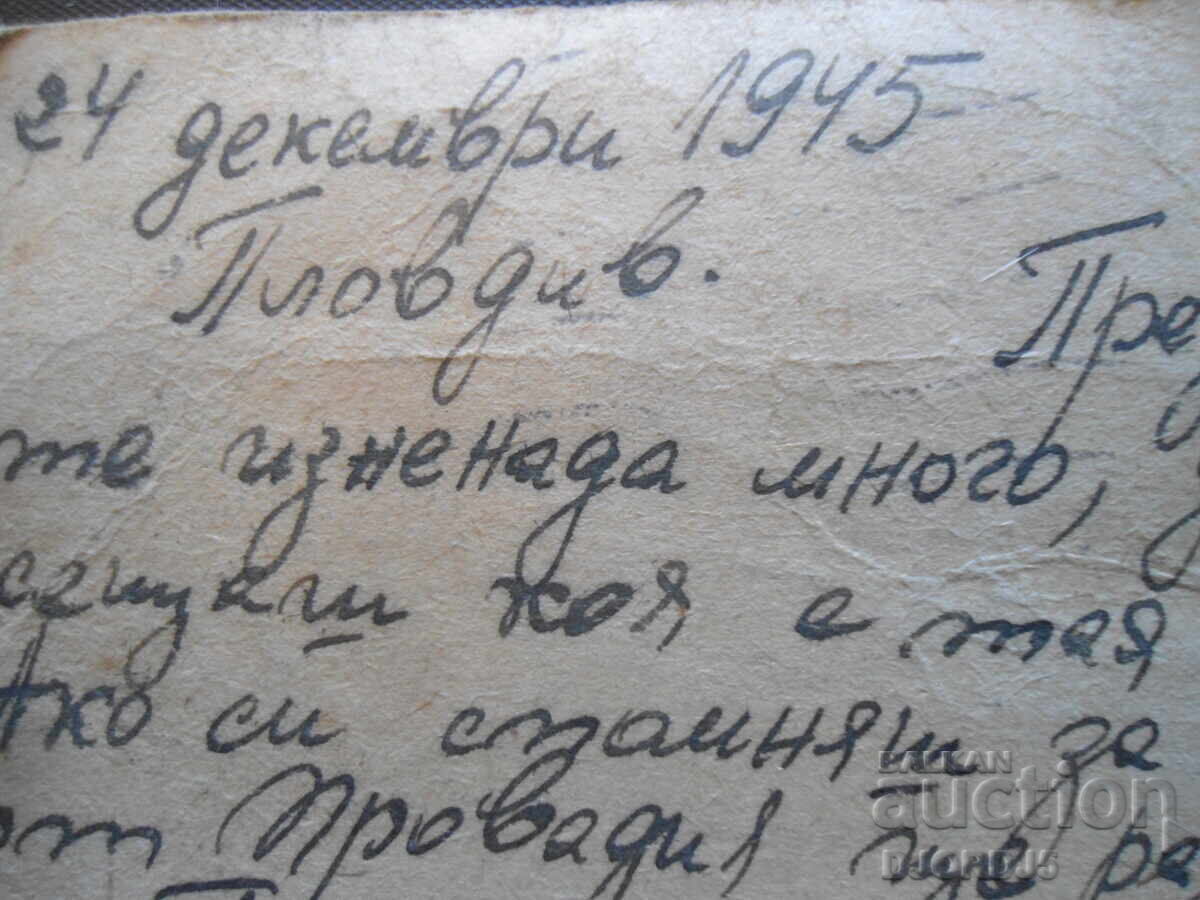 24 декември 1945
Пловдив.
Пре
те изненада много,
сещаш коя е тая
Ако си спомняш за
от Провадия где ра
BALKAN
auction
DJORDJ5